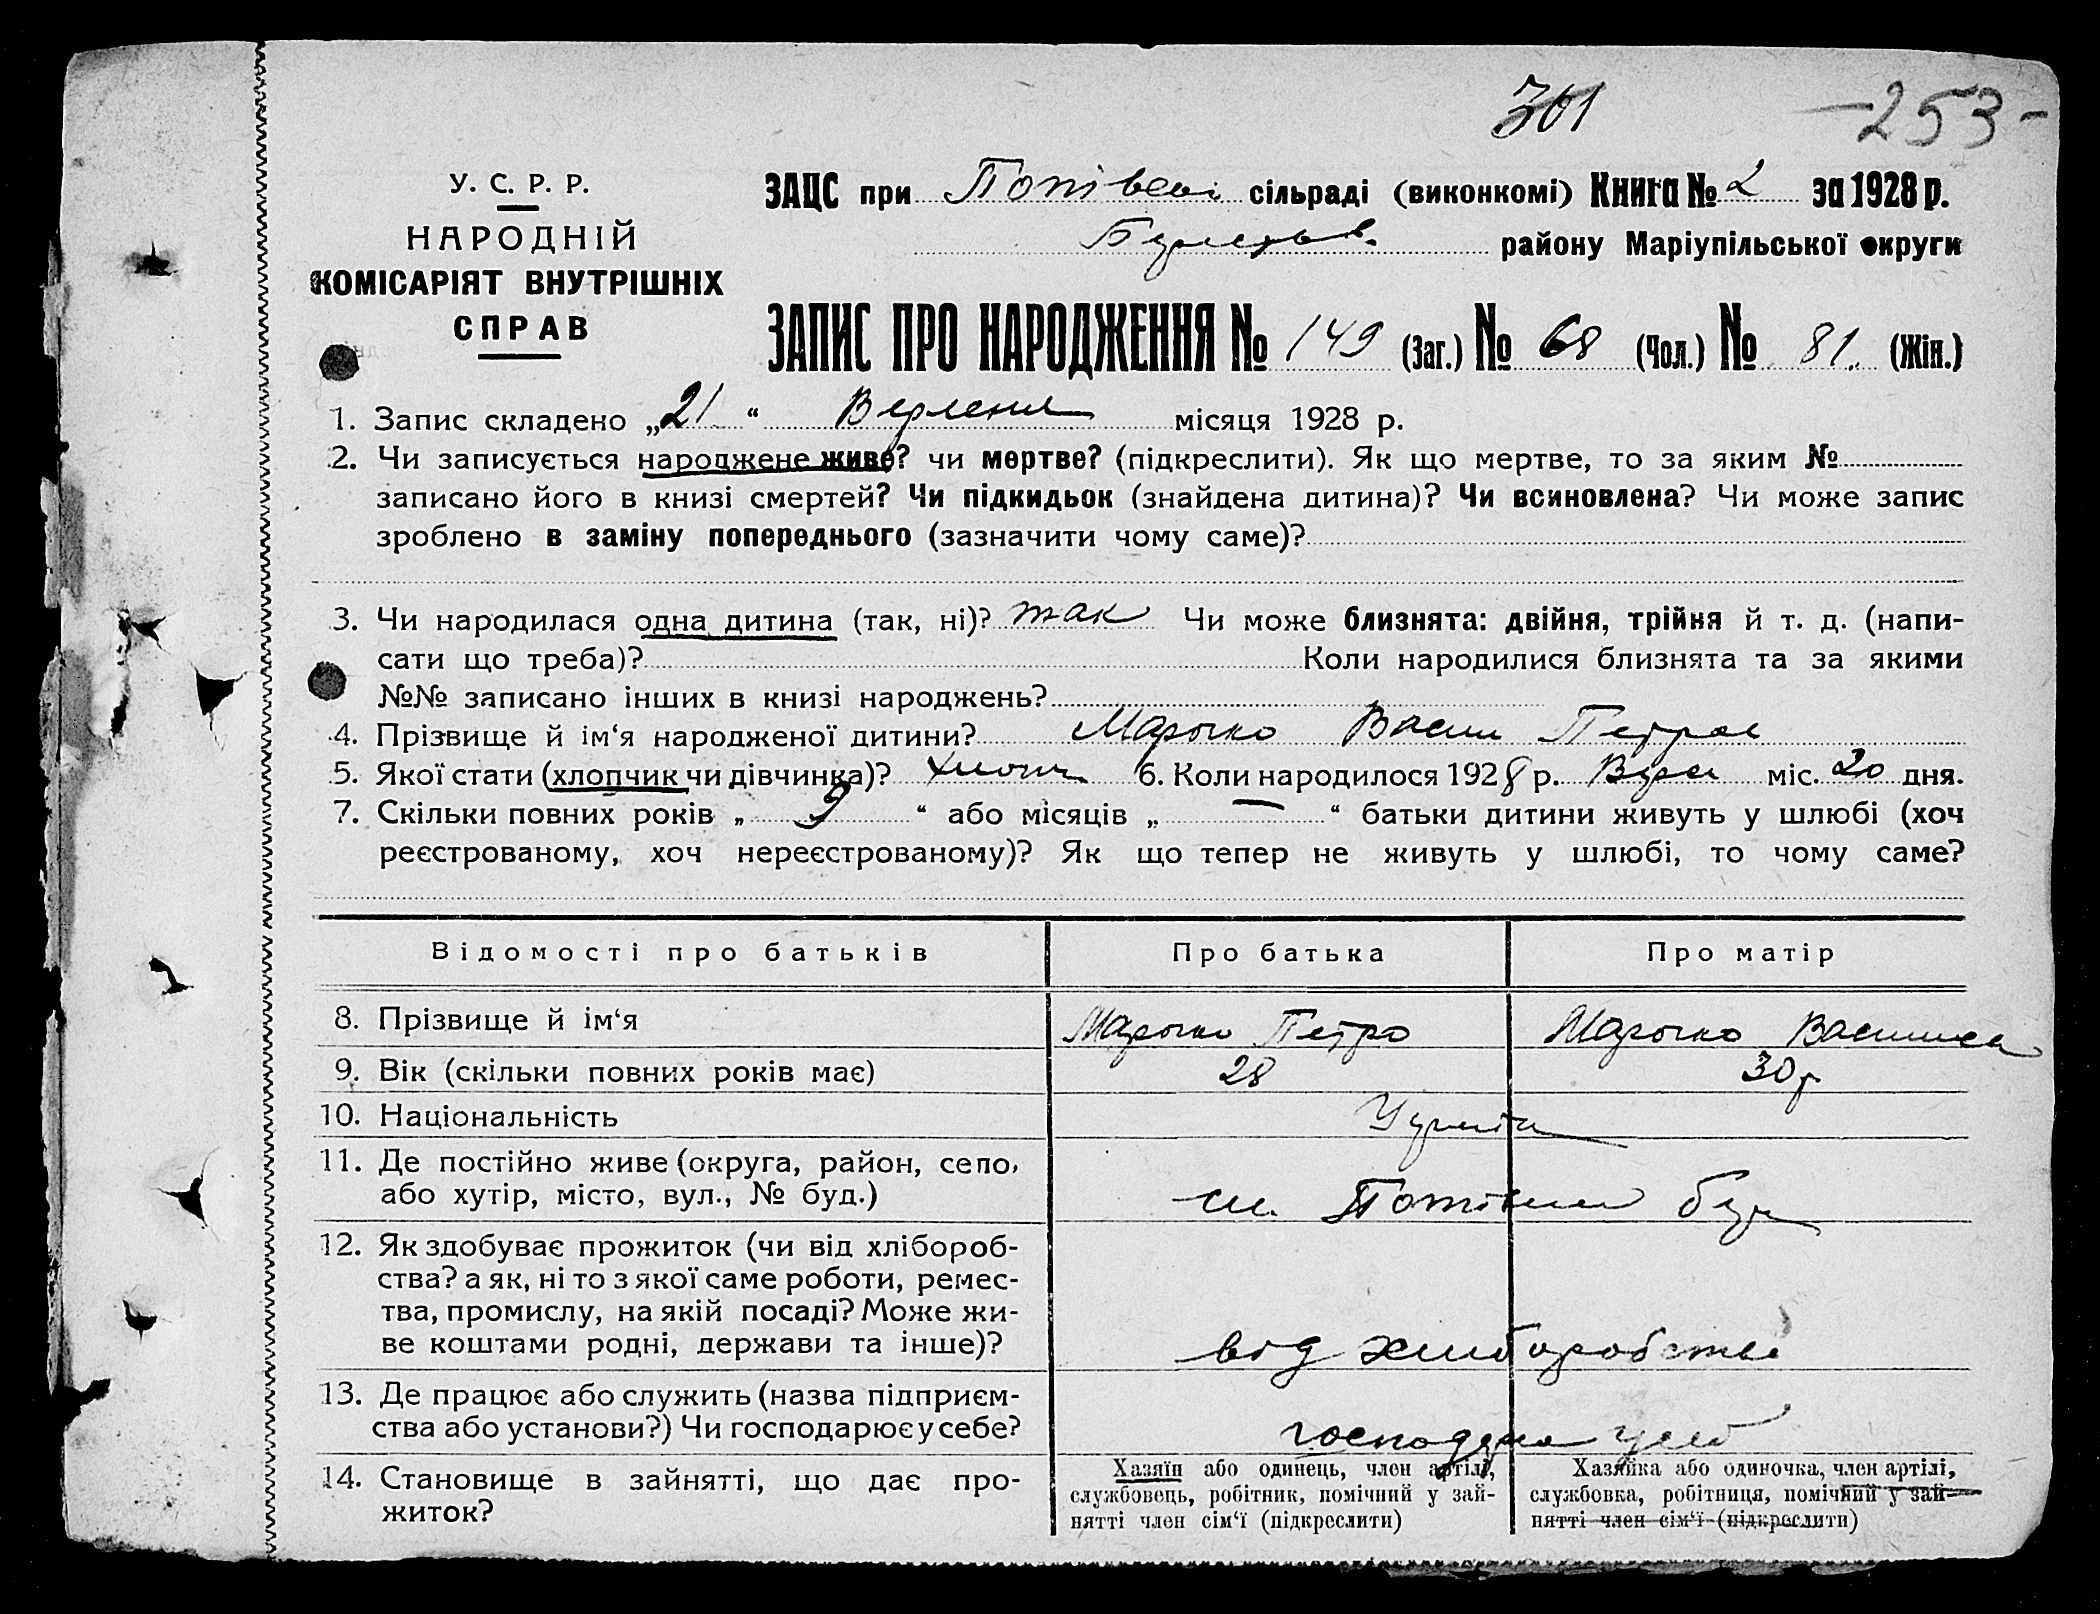 301 -253-
У. С. Р. Р.
НАРОДНІЙ
КОМІСАРІЯТ ВНУТРІШНІХ
СПРАВ
ЗАЦС при сільраді (виконкомі) Книга № 2 за 1928 р.
району Маріупільської округи
ЗАПИС ПРО НАРОДЖЕННЯ № 149 (Заг.) № 68 (Чол.) № 81. (Жін.)
1. Запис складено „21“ Вересня місяця 1928 р.
2. Чи записується народжене живе? чи мертве? (підкреслити). Як що мертве, то за яким №
записано його в книзі смертей? Чи підкидьок (знайдена дитина)? Чи всиновлена? Чи може запис
зроблено в заміну попереднього (зазначити чому саме)?
3. Чи народилася одна дитина (так, ні)? так Чи може близнята: двійня, трійня й т. д. (напи-
сати що треба)? Коли народилися близнята та за якими
№№ записано інших в книзі народжень?
4. Прізвище й ім‘я народженої дитини? Марочко Васил Петров
5. Якої стати (хлопчик чи дівчинка)? хлопч 6. Коли народилося 1928 р. Верес міс. 20 дня.
7. Скільки повних років „ 9 “ або місяців „ — “ батьки дитини живуть у шлюбі (хоч
реєстрованому, хоч нереєстрованому)? Як що тепер не живуть у шлюбі, то чому саме?
Відомості про батьків Про батька Про матір
8. Прізвище й ім‘я Марочко Петро Марочко Василиса
9. Вік (скільки повних років має) 28 30 р
10. Національність
11. Де постійно живе (округа, район, село,
або хутір, місто, вул., № буд.)
12. Як здобуває прожиток (чи від хлібороб-
ства? а як, ні то з якої саме роботи, ремес-
тва, промислу, на якій посаді? Може жи-
ве коштами родні, держави та інше)? від хліборобства
13. Де працює або служить (назва підприєм-
ства або установи?) Чи господарює у себе?
14. Становище в зайнятті, що дає про-
житок?
Хазяїн або одинець, член артілі,
службовець, робітник, помічний у зай-
нятті член сім‘ї (підкреслити)
Хазяйка або одиночка, член артілі,
службовка, робітниця, помічний у зай-
нятті член сім‘ї (підкреслити)